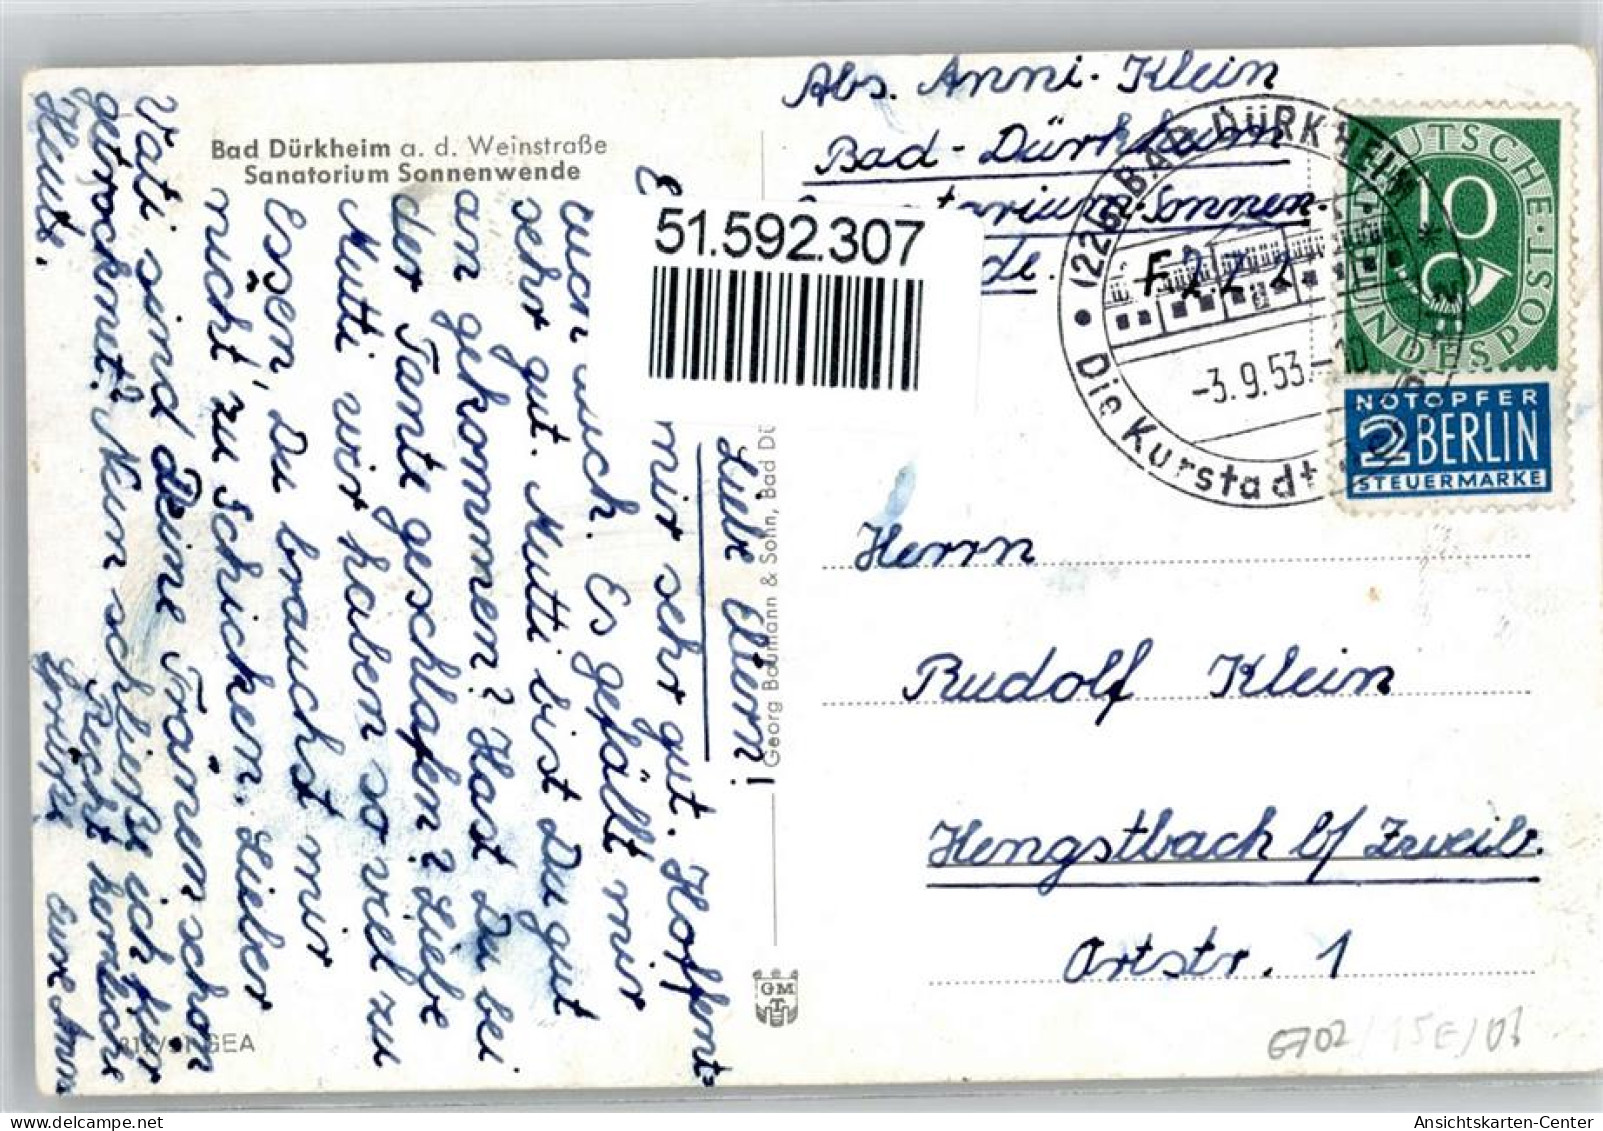 Bad Dürkheim a. d. Weinstraße
Sanatorium Sonnenwende
51.592.307
Liebe Eltern!
mir sehr gut. Hoffent=
auch. Es gefällt mir
sehr gut. Mutti bist Du gut
an gekommen? Hast Du bei
der Tante geschlafen? Liebe
Mutti wir haben so viel zu
Essen, Du brauchst mir
nicht zu Schicken. Lieber
Vati sind Deine Tränen schon
getrocknet? Nun schließe ich für
Heute.
Recht herzliche
Grüße
Eure Anni
Georg Baumann & Sohn, Bad Dü
GM
T
GEA
Abs. Anni Klein
Bad-Dürkheim
Sonnen-
de.
F222
(22b) BAD DÜRKHEIM
-3.9.53.-10
Die Kurstadt
DEUTSCHE POST
10
BUNDESPOST
NOTOPFER
2 BERLIN
STEUERMARKE
Herrn
Rudolf Klein
Hengstbach b/ Zweib.
Ortstr. 1
6702/15E/03
Ansichtskarten-Center